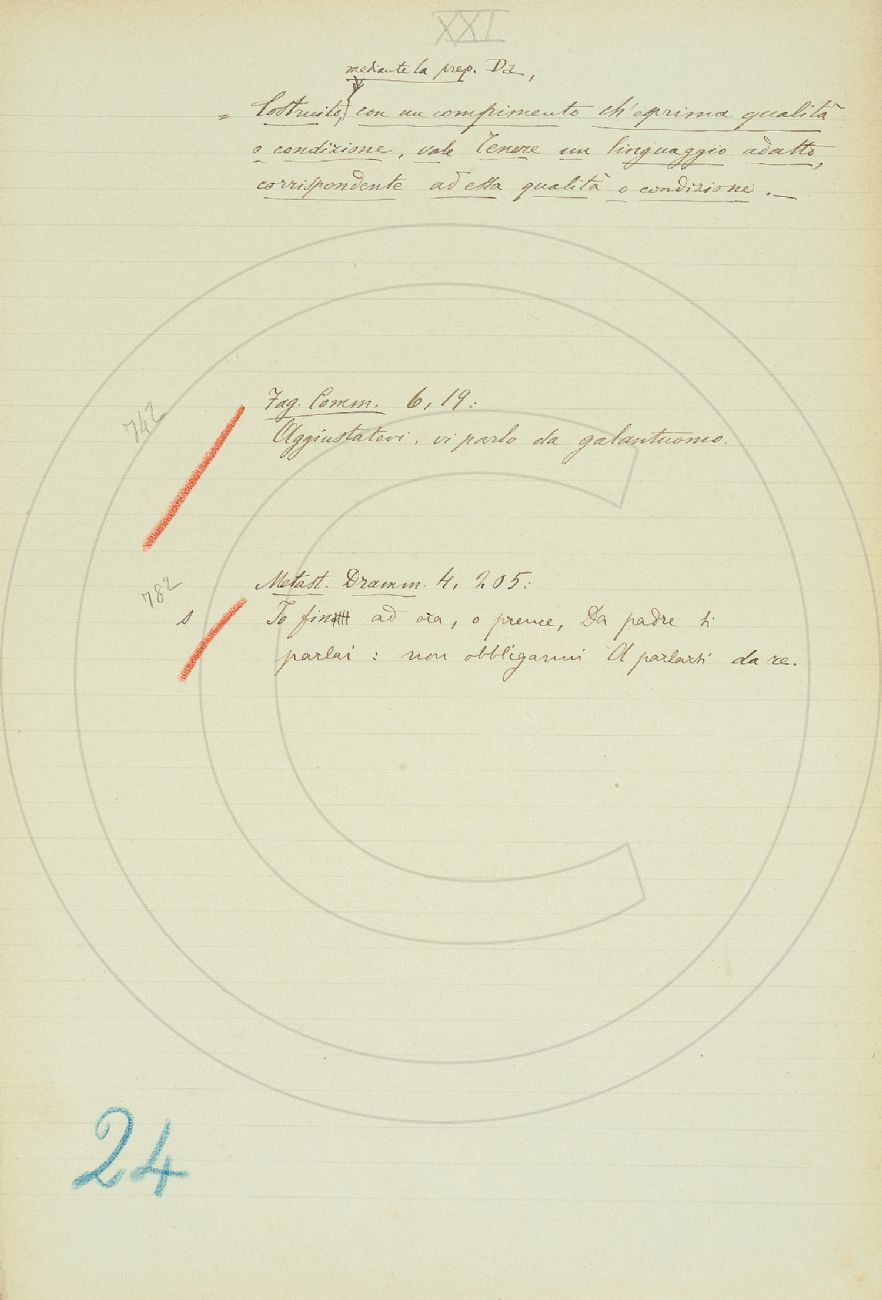 XXI
mediante la prep. Da,
= Costruito, con un compimento ch'esprima qualità
o condizione, vale Tenere un linguaggio adatto,
corrispondente ad essa qualità o condizione. —
742
Fag. Comm. 6, 19:
Aggiustatevi, vi parlo da galantuomo.
782
Metast. Dramm. 4, 205:
s Io fin ad ora, o prence, Da padre ti
parlai: non obbligarmi A parlarti da re.
24